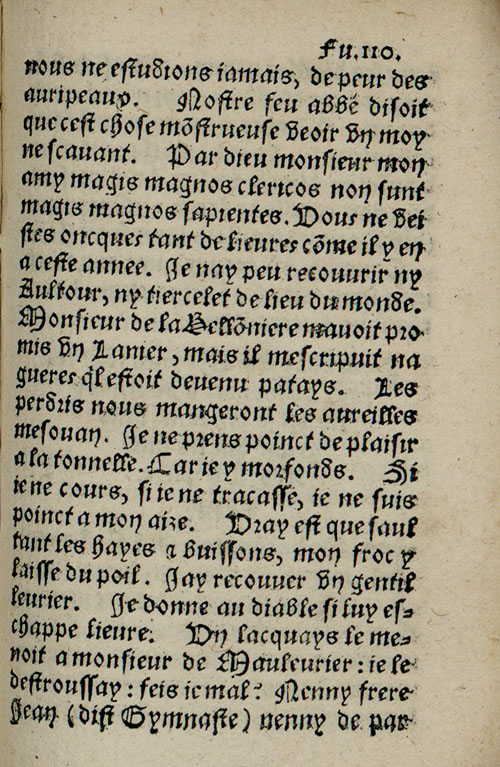 Fu.110.
nous ne estudions iamais, de peur des
auripeaux. Nostre feu abbé disoit
que cest chose mõstrueuse veoir vn moy
ne scauant. Par dieu monsieur mon
amy magis magnos clericos non sunt
magis magnos sapientes. Vous ne vei
stes oncques tant de lieures cõme il y en
a ceste annee. Je nay peu recouurir ny
Aultour, ny tiercelet de lieu du monde.
Monsieur de la Bellõniere mauoit pro
mis vn Lanier, mais il mescripuit na
gueres q̃l estoit deuenu patays. Les
perdris nous mangeront les aureilles
mesouan. Je ne prens poinct de plaisir
a la tonnelle. Car ie y morfonds. Si
ie ne cours, si ie ne tracasse, ie ne suis
poinct a mon aize. Vray est que saul
tant les hayes & buissons, mon froc y
laisse du poil. Jay recouuer vn gentil
leurier. Je donne au diable si luy es-
chappe lieure. Vn lacquays le me-
noit a monsieur de Mauleurier: ie le
destroussay: feis ie mal? Nenny frere
Jean (dist Gymnaste) nenny de par